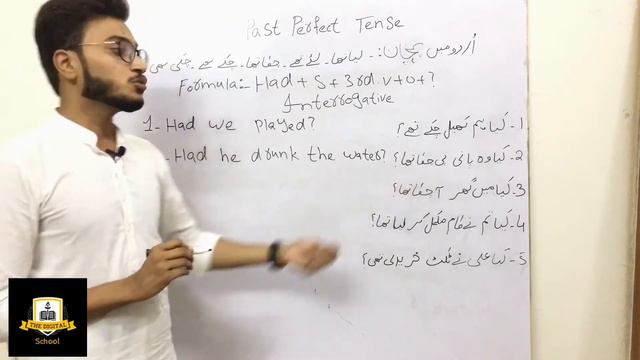 Past Perfect Tense
اُردو میں پہچان:۔ لیا تھا۔ لئے تھے۔ چکا تھا۔ چکے تھے۔ چکی تھی
Formula:- Had + S + 3rd v + o + ?
Interrogative
1- Had we played?
1- کیا ہم کھیل چکے تھے؟
- Had he drunk the water?
2- کیا وہ پانی پی چکا تھا؟
3- کیا میں گھر آ چکا تھا؟
4- کیا تم نے کام مکمل کر لیا تھا؟
5- کیا علی نے ٹکٹ خرید لی تھی؟
THE DIGITAL
School